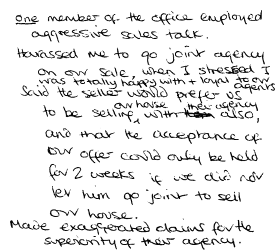 one member of the office employed
aggressive sales talk.
Harassed me to go joint agency
on our sale, when I stressed I
was totally happy with + loyal to our agents
Said the seller would prefer us
our house their agency
to be selling, with also,
and that the acceptance of
our offer could only be held
for 2 weeks if we did not
let him go joint to sell
our house.
Made exaggerated claims for the
superiority of their agency.